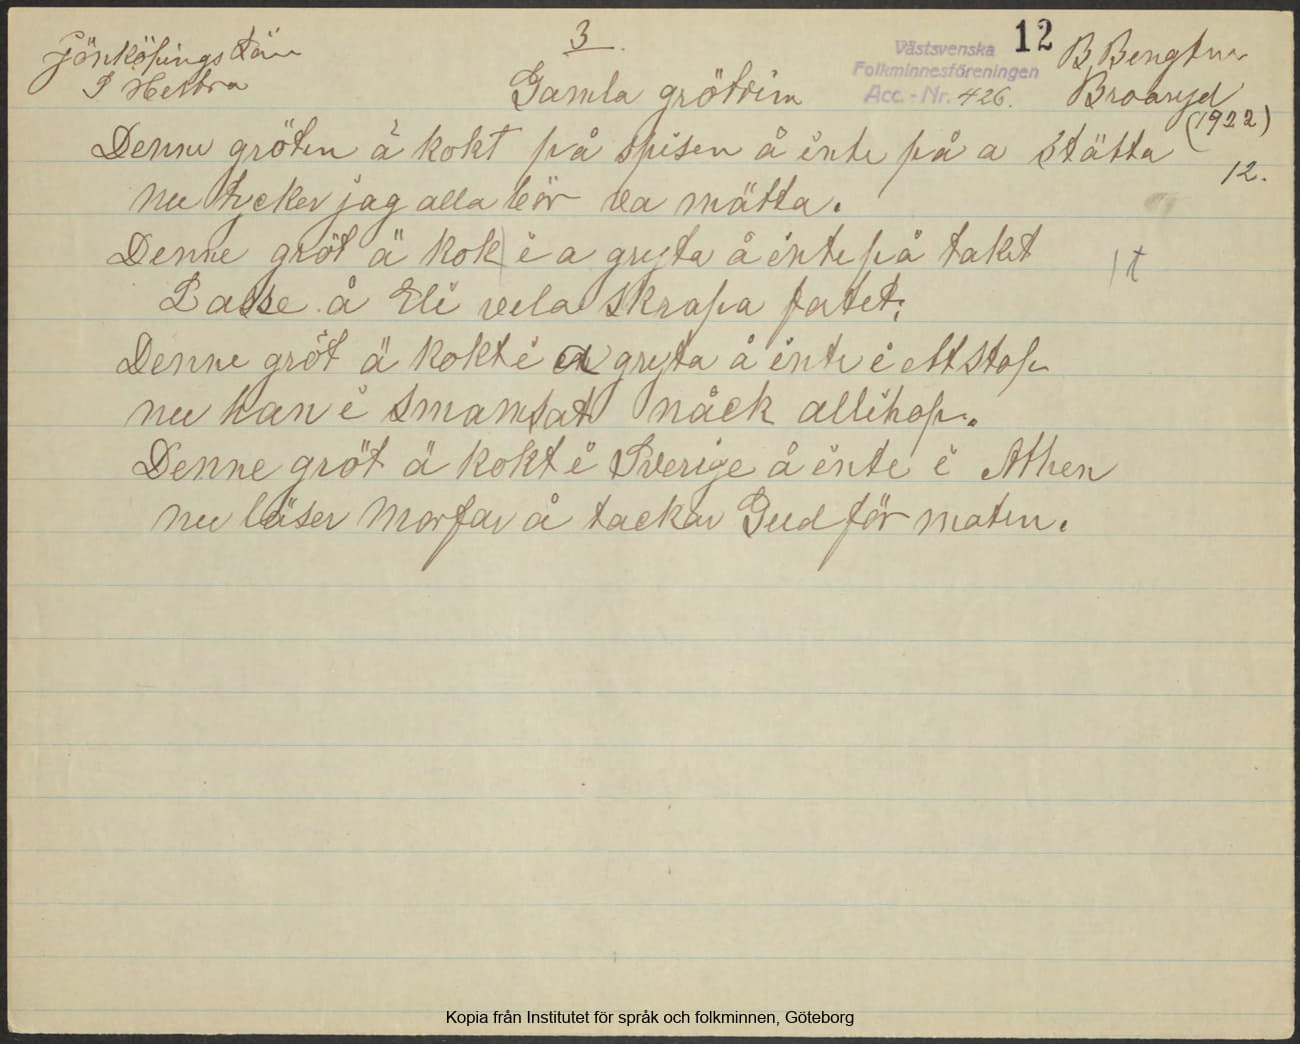 Jönköpings Län
S Hestra
3
12
Västsvenska
Folkminnesföreningen
Acc.-Nr. 426.
B. Bengtson
Broaryd
(1922)
12.
Gamla grötrim
Denne gröten ä kokt på spisen å inte på a stätta
nu tycker jag alla bör va mätta.
Denne gröt ä kok| i a gryta å inte på taket
|t
Lasse å Eli vela skrapa fatet.
Denne gröt ä kokt i a gryta å inte i ett stop
nu han i smamsat nåck allihop.
Denne gröt ä kokt i Sverige å inte i Athen
nu läser Morfar å tackar Gud för maten.
Kopia från Institutet för språk och folkminnen, Göteborg